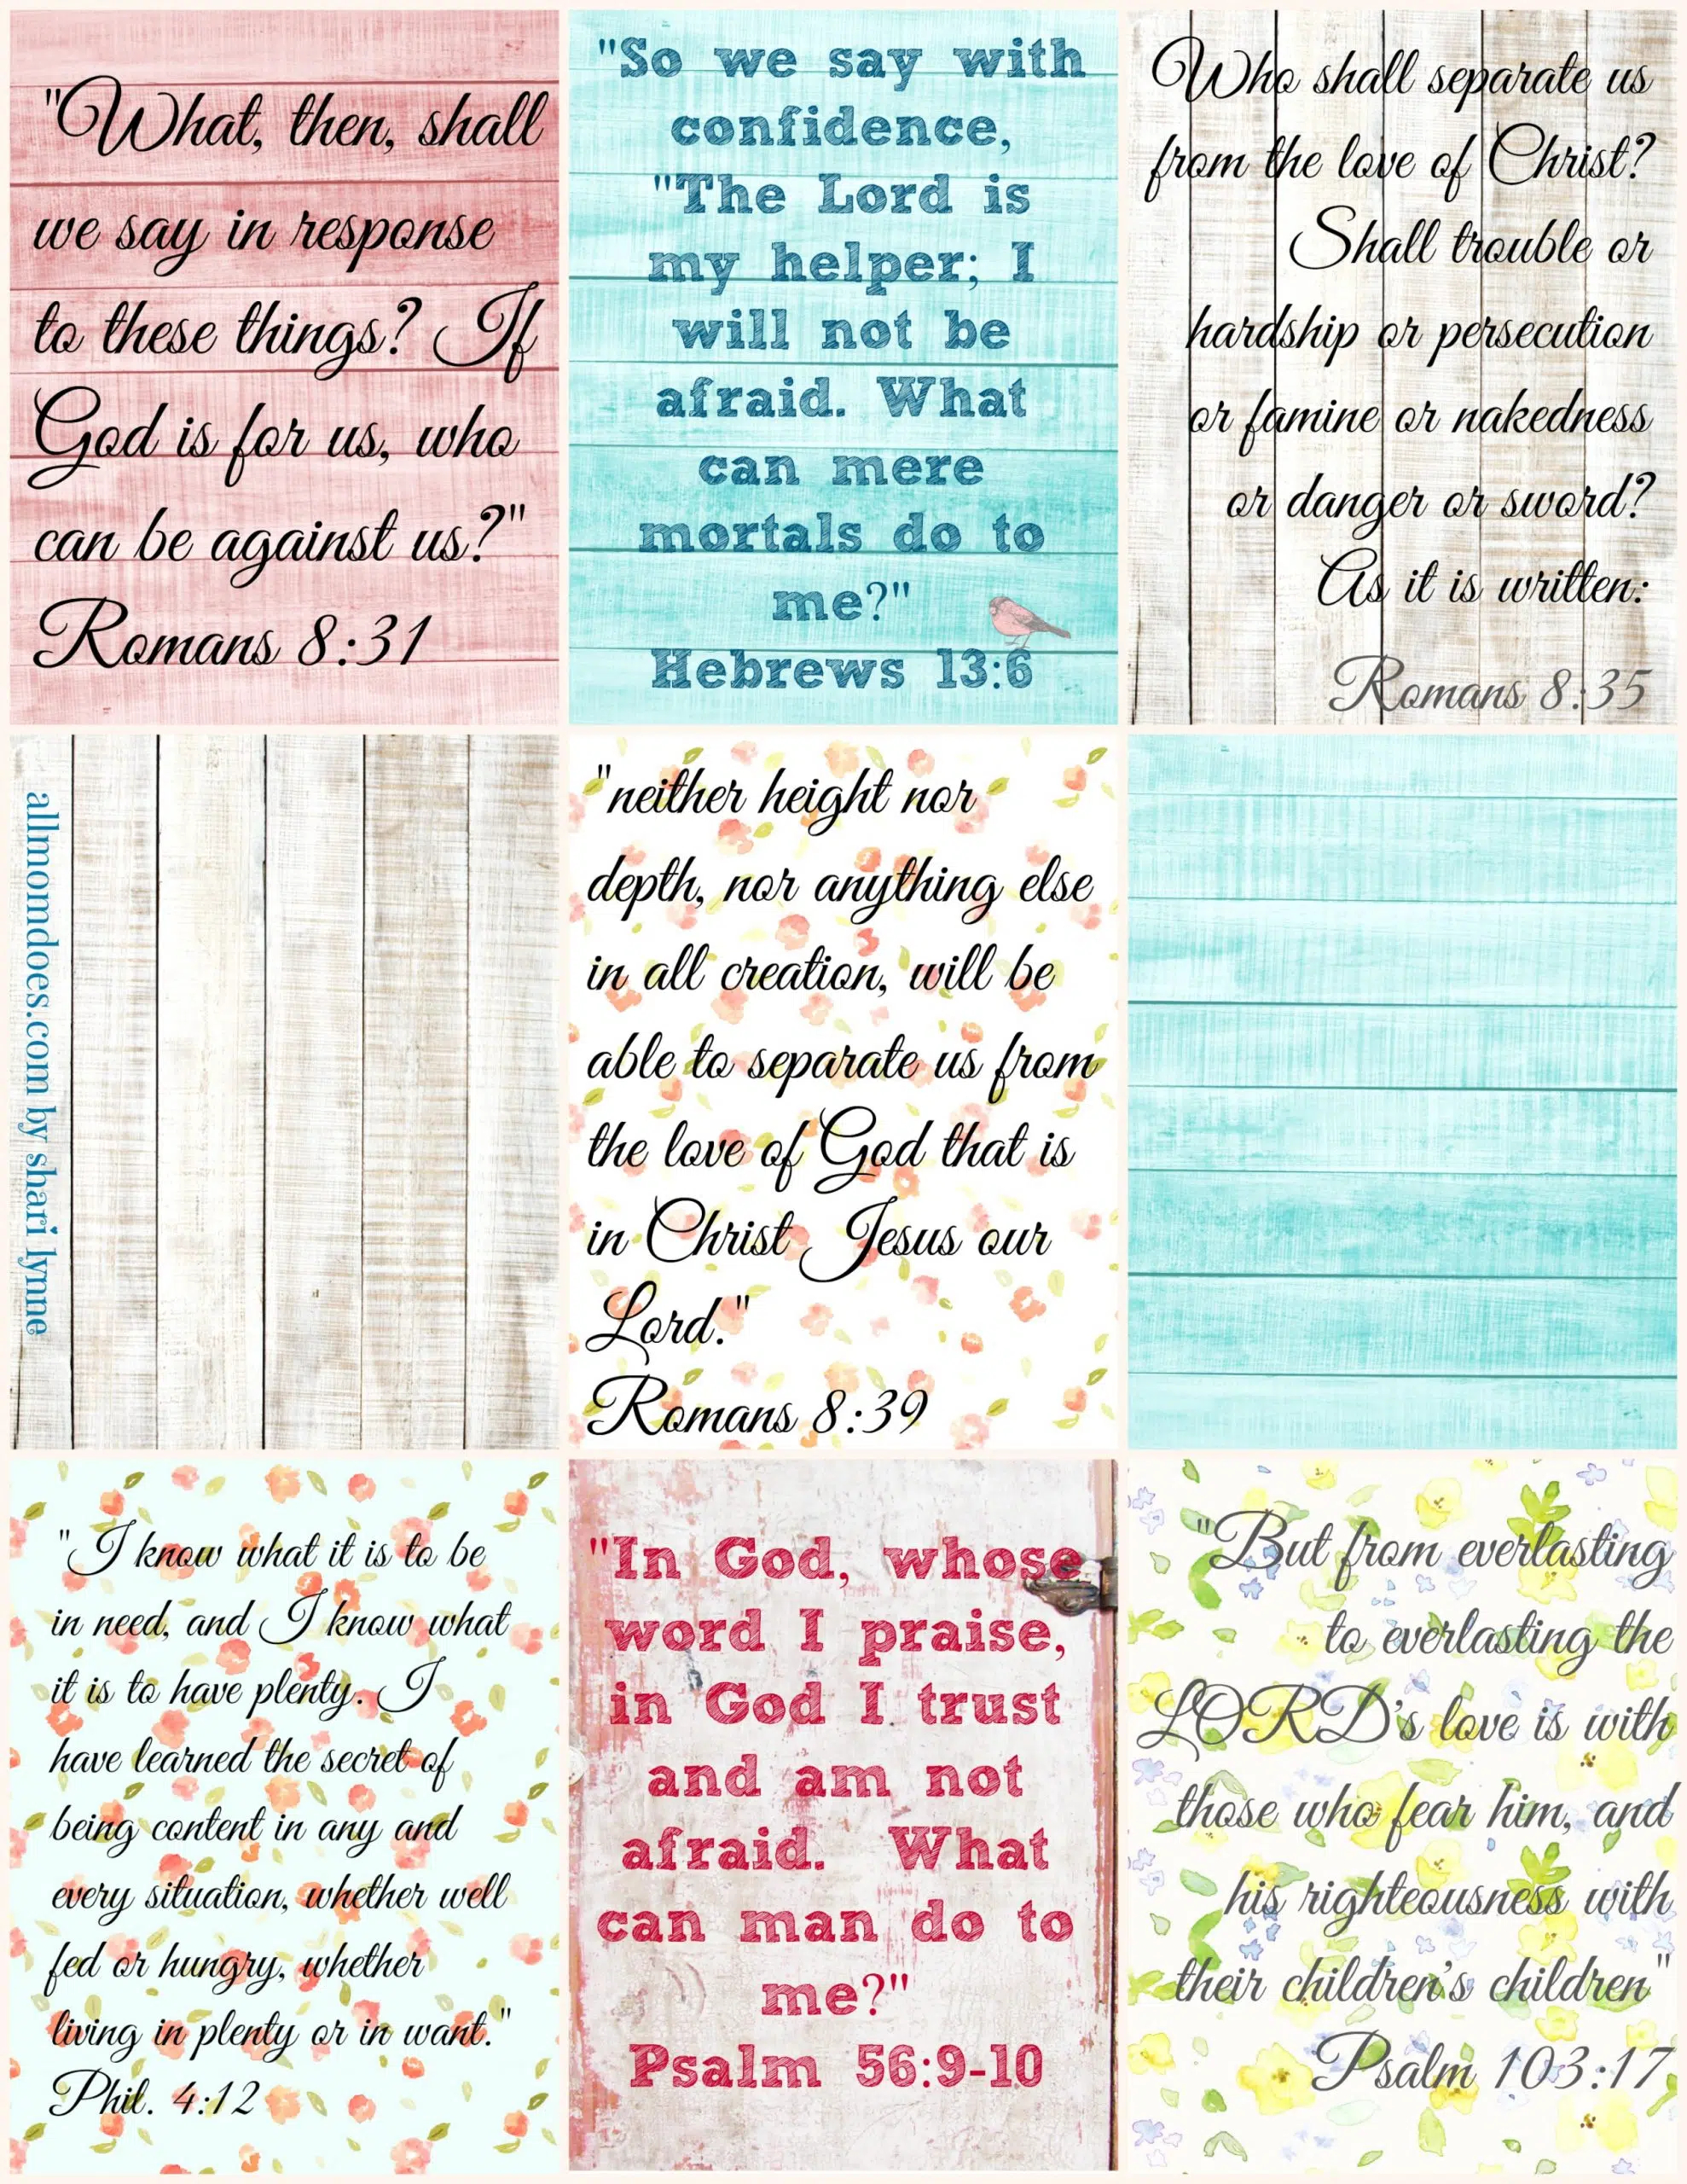 "What, then, shall
we say in response
to these things? If
God is for us, who
can be against us?"
Romans 8:31
"So we say with
confidence,
"The Lord is
my helper; I
will not be
afraid. What
can mere
mortals do to
me?"
Hebrews 13:6
Who shall separate us
from the love of Christ?
Shall trouble or
hardship or persecution
or famine or nakedness
or danger or sword?
As it is written:
Romans 8:35
allmomdoes.com by shari lynne
"neither height nor
depth, nor anything else
in all creation, will be
able to separate us from
the love of God that is
in Christ Jesus our
Lord."
Romans 8:39
"I know what it is to be
in need, and I know what
it is to have plenty. I
have learned the secret of
being content in any and
every situation, whether well
fed or hungry, whether
living in plenty or in want."
Phil. 4:12
"In God, whose
word I praise,
in God I trust
and am not
afraid. What
can man do to
me?"
Psalm 56:9-10
"But from everlasting
to everlasting the
LORD's love is with
those who fear him, and
his righteousness with
their children's children"
Psalm 103:17